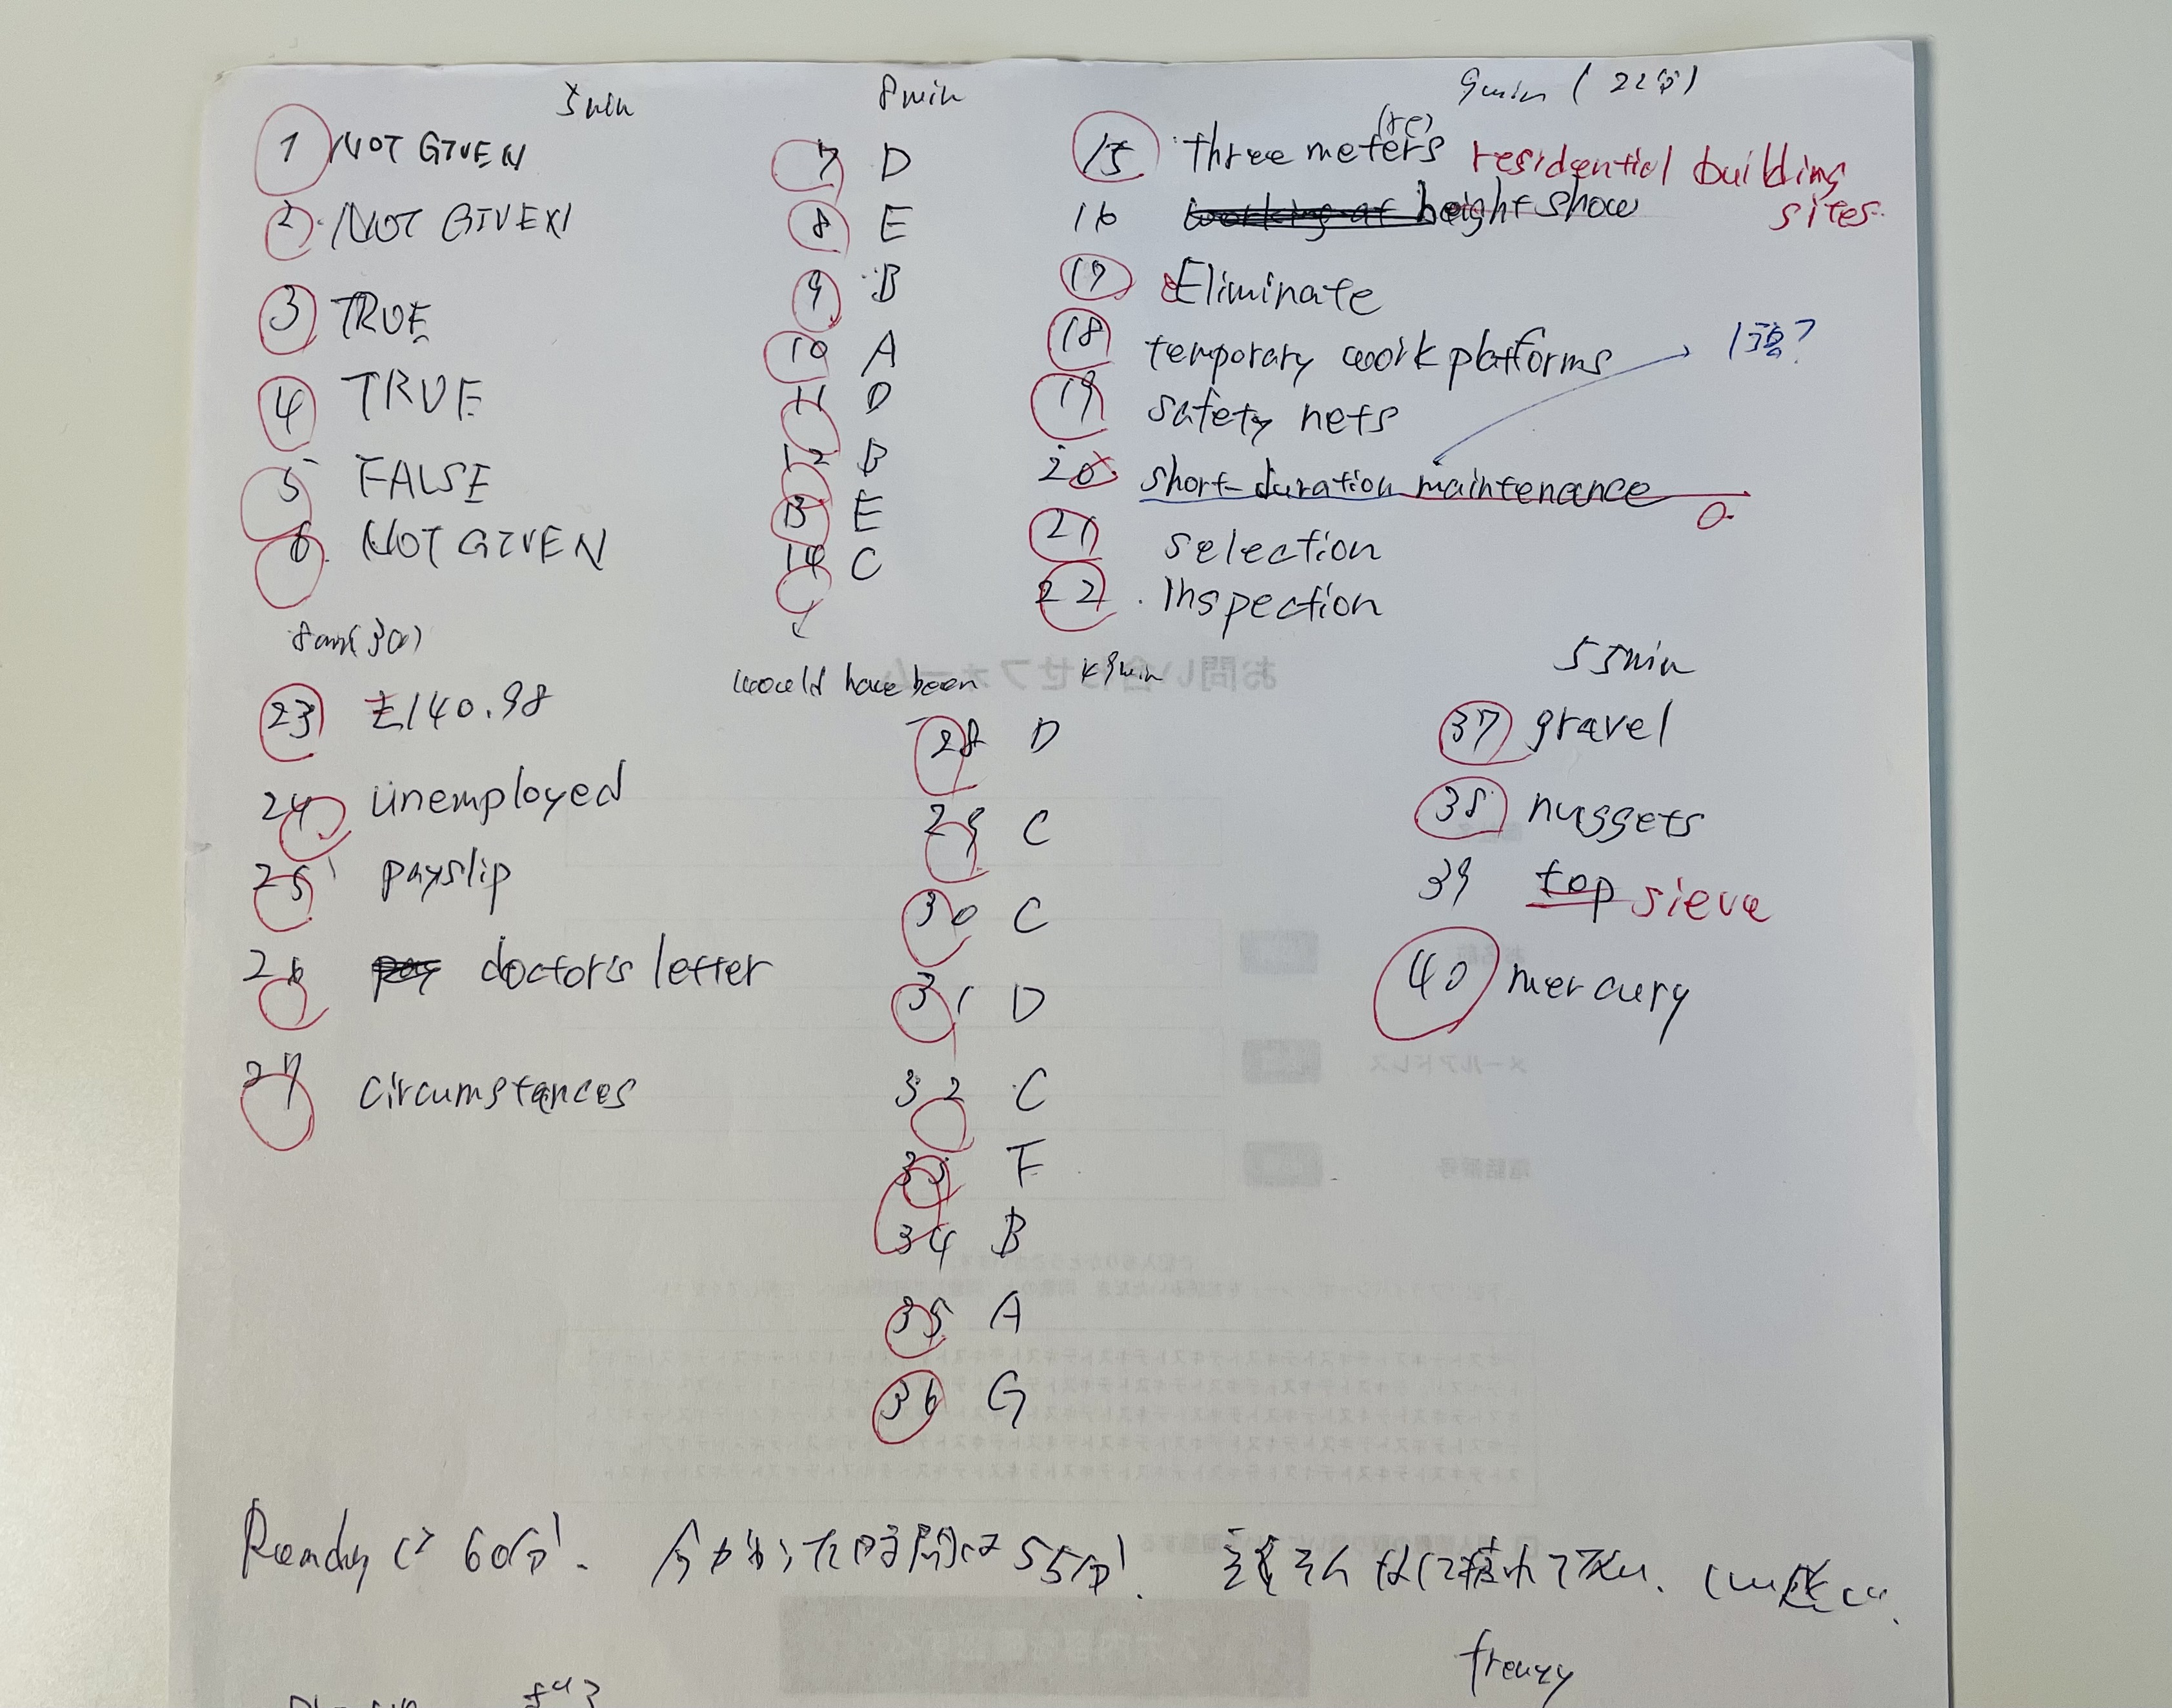 5min
1 NOT GIVEN
2 NOT GIVEN
3 TRUE
4 TRUE
5 FALSE
6 NOT GIVEN
8min
7 D
8 E
9 B
10 A
11 D
12 B
13 E
14 C
would have been
9min (22分)
(re)
15 three meters residential building sites
16 working at height show
17 Eliminate
18 temporary work platforms
19 safety nets
1語?
20 short-duration maintenance
21 selection
22 Inspection
23 £140.98
24 unemployed
25 payslip
26 pay doctor's letter
27 circumstances
28 D
29 C
30 C
31 D
32 C
33 F
34 B
35 A
36 G
55min
37 gravel
38 nuggets
39 top sieve
40 mercury
お問い合わせフォーム
お名前
メールアドレス
電話番号
は 60分. 今かかった時間は 55分.
frenzy